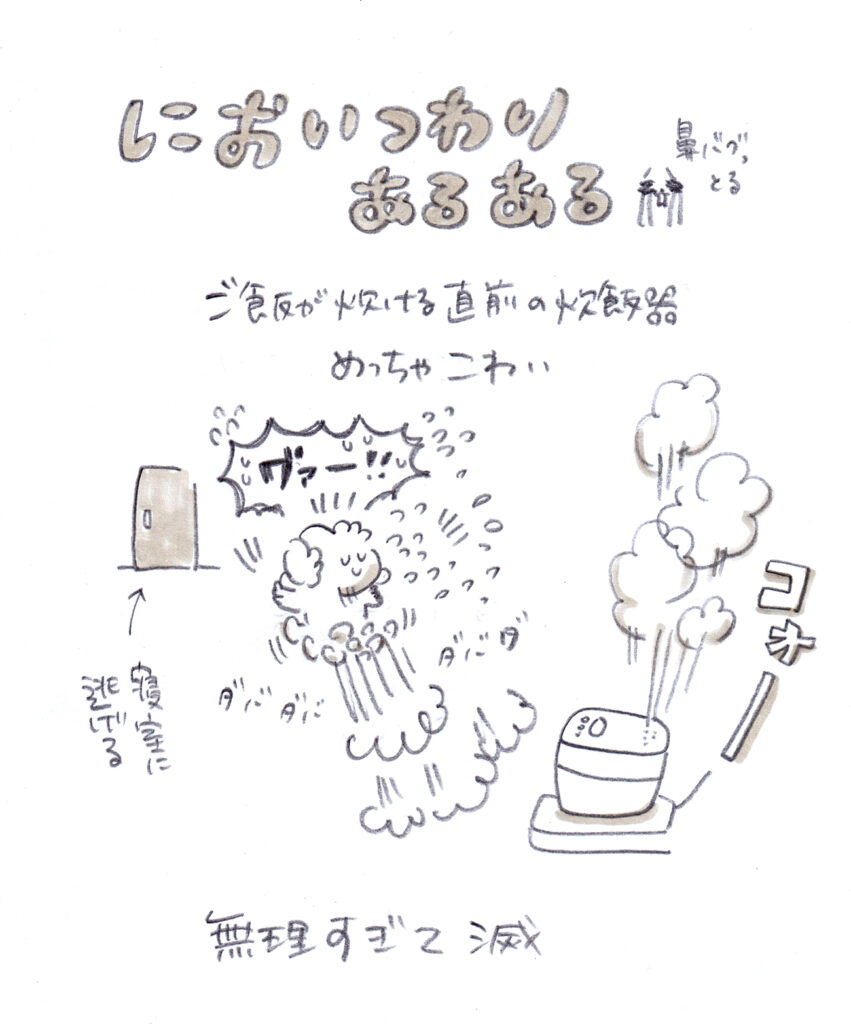 におい つわり
あるある
鼻バグっ
とる
ご飯が炊ける直前の炊飯器
めっちゃこわい
ヴァー!!
コオー
ダバダ
ダバダバ
寝室に
逃げる
無理すぎて滅